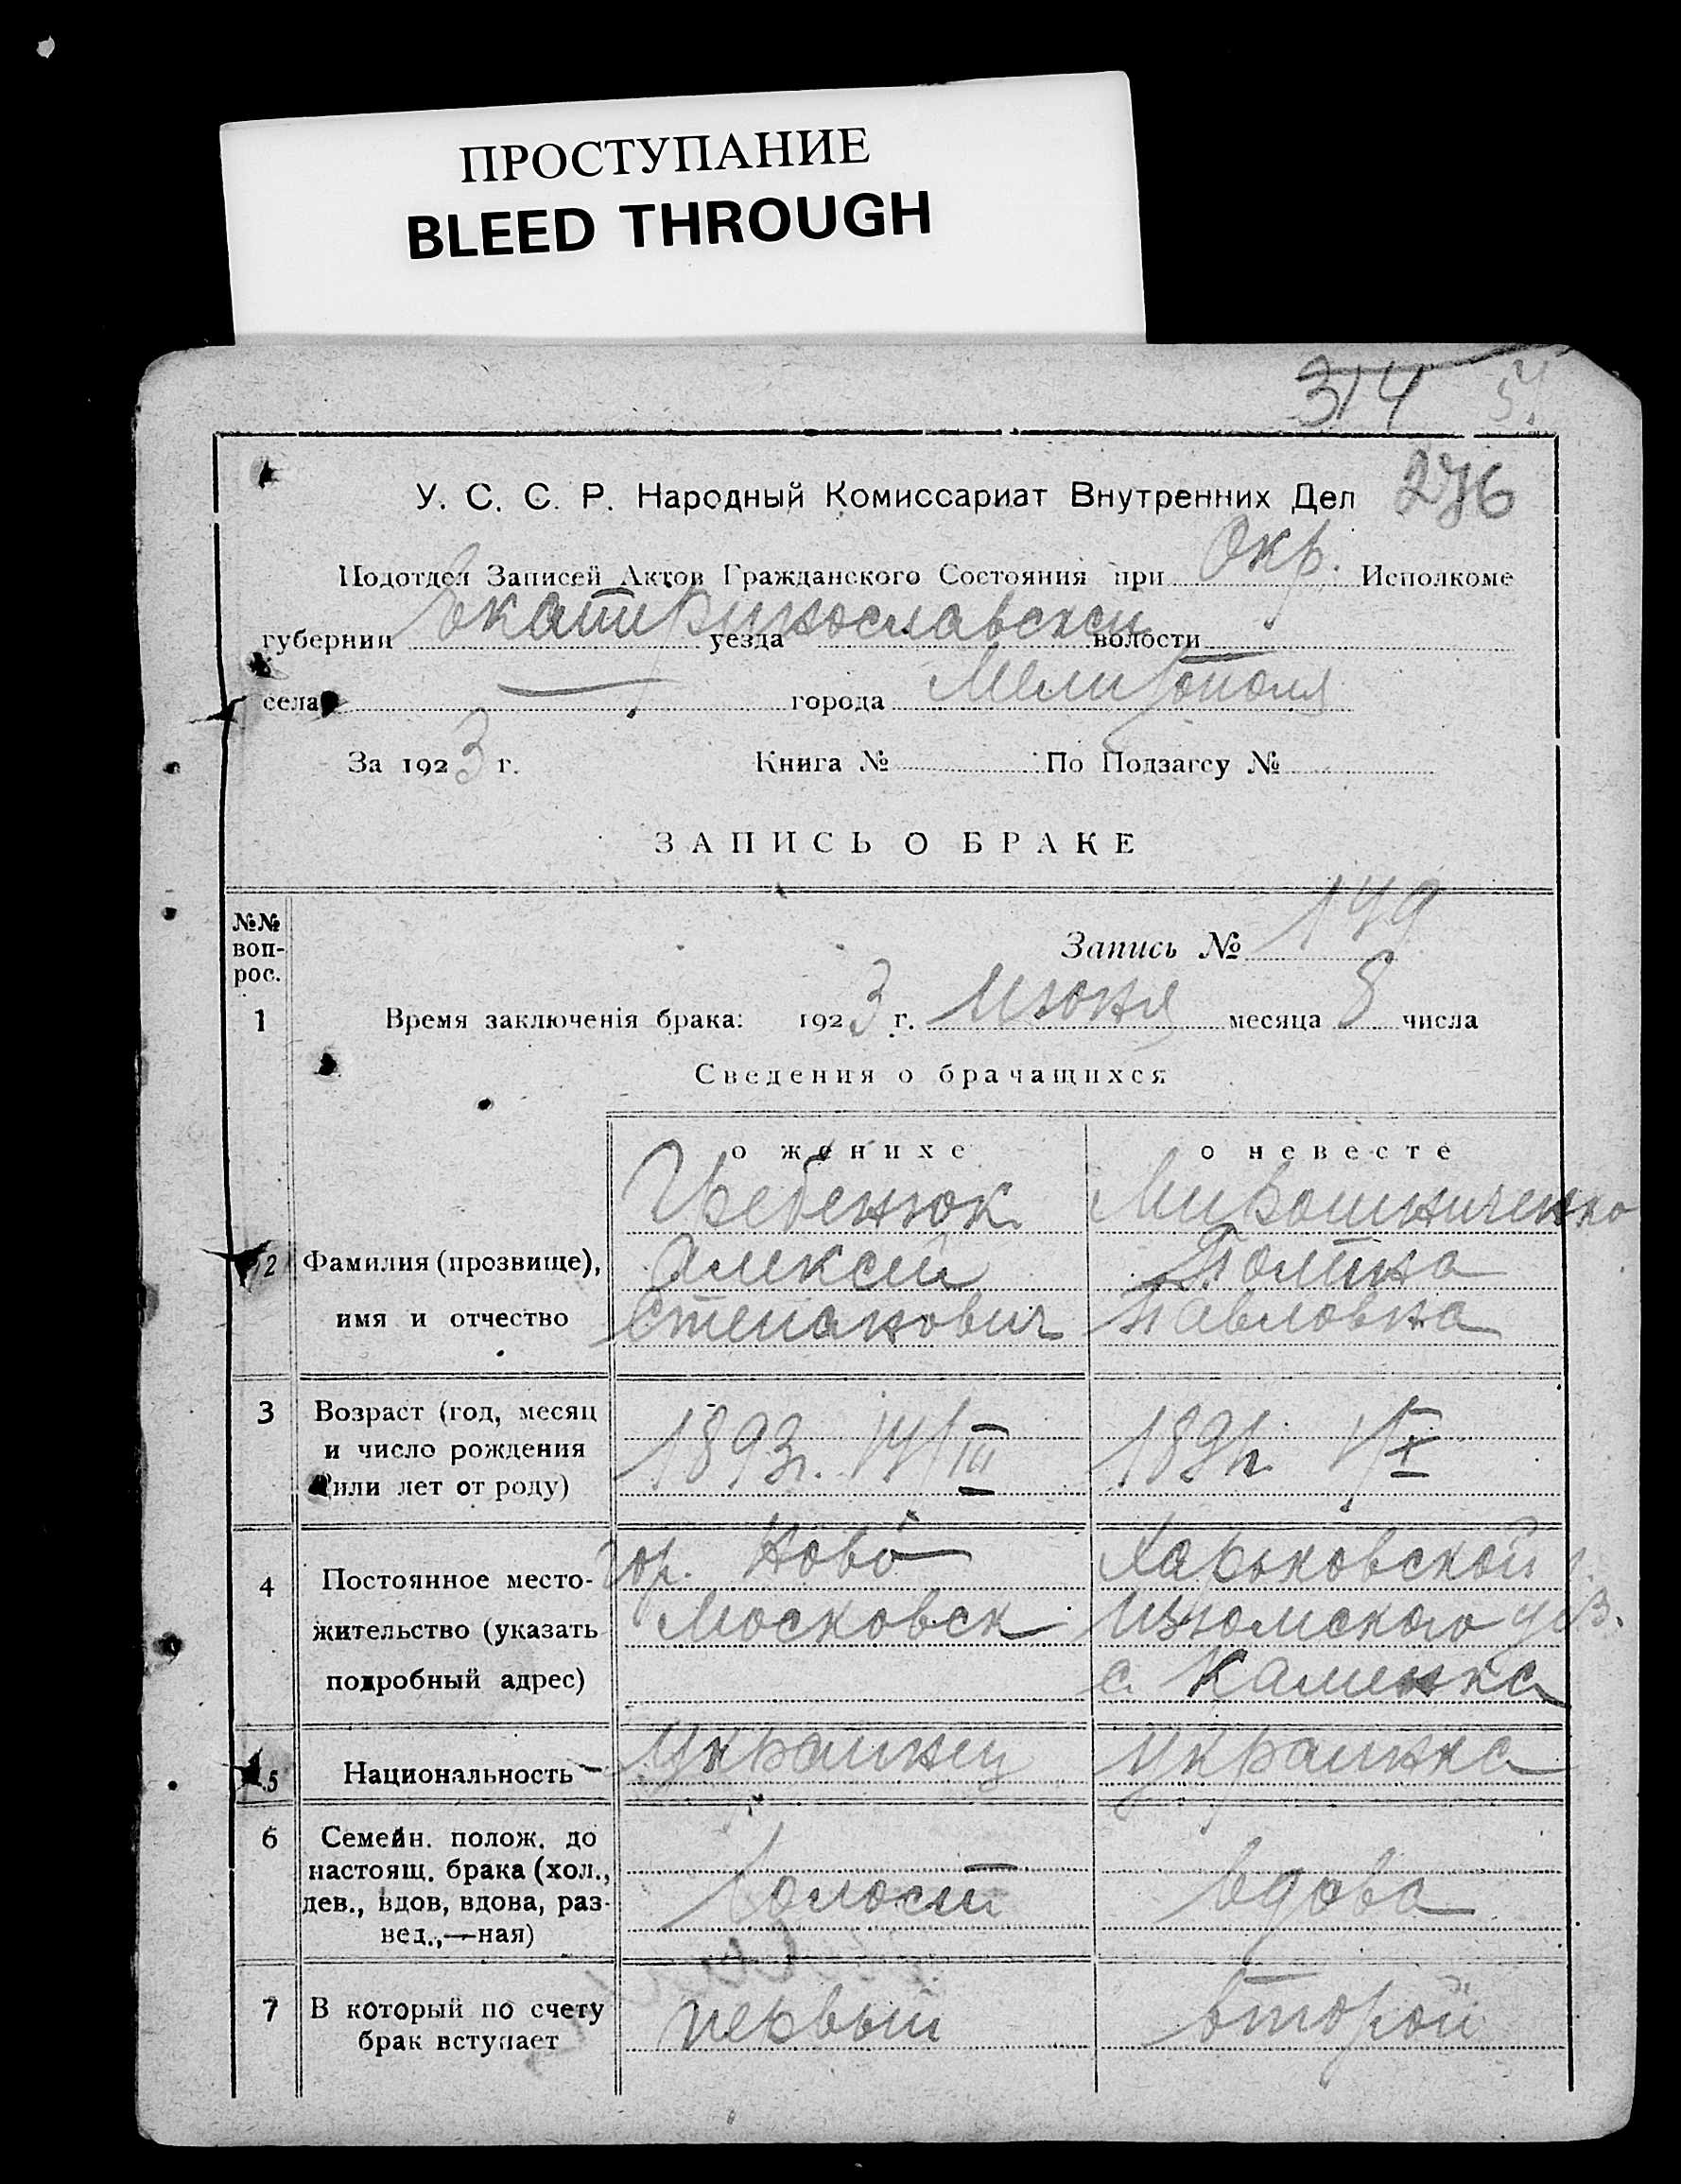 ПРОСТУПАНИЕ
BLEED THROUGH
314
276
У. С. С. Р. Народный Комиссариат Внутренних Дел
Подотдел Записей Актов Гражданского Состояния при Окр. Исполкоме
губернии Екатеринославской уезда волости
села — города Мелитополя
За 1923 г. Книга № По Подзагсу №
ЗАПИСЬ О БРАКЕ
№№ воп-
рос.
Запись № 149
1 Время заключенія брака: 1923 г. Июня месяца 8 числа
Сведения о брачащихся
о женихе о невесте
Гребенюк Мирошниченко
2 Фамилия (прозвище), Алексей
имя и отчество Степанович Павловна
3 Возраст (год, месяц
и число рождения 1893г. 14/III
(или лет от роду)
гор. Ново Харьковской г.
4 Постоянное место-
жительство (указать Московск Изюмского уез.
подробный адрес) с. Каменка
5 Национальность Украинец Украинка
6 Семейн. полож. до
настоящ. брака (хол.,
дев., вдов, вдова, раз- холост вдова
вед.,—ная)
7 В который по счету первый второй
брак вступает